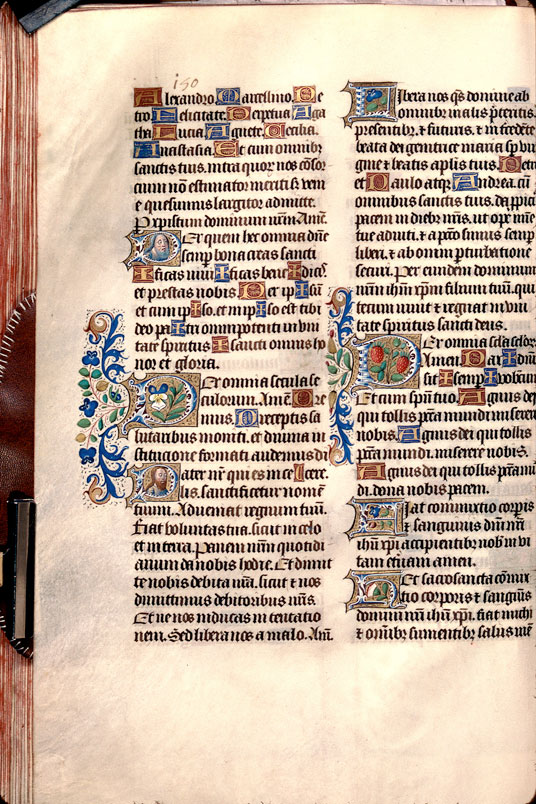 150
Alexandro. Marcellino. Pe
tro. Felicitate. Perpetua. Aga
tha. Lucia. Agnete. Cecilia.
Anastasia. Et cum omnibus
sanctis tuis. intra quor nos cōsor
cium nō estimator meriti. sz veni
e quesumus largitor admitte.
Per xp̄istum dominum nr̄m. Amē.
Per quem hec omnia dn̄e
semp bona creas sancti
ficas viui ficas bene dicis.
et prestas nobis. Per ip sū
et cum ip so. et in ip so est tibi
deo pa tri omnipotenti in vni
tate spiritus sancti omnis ho
nor et gloria.
Per omnia secula se
culorum. Amē. Ore
mus. Preceptis sa
lutaribus moniti. et diuina in
stitucione formati audemus di
Pater nr̄ qui es in ce cere.
lis. sanctificetur nomē
tuum. Adueniat regnum tuū.
Fiat voluntas tua. sicut in celo
et in terra. Panem nr̄m quotidi
anum da nobis hodie. Et dimit
te nobis debita nr̄a. sicut et nos
dimittimus debitoribus nr̄is.
Et ne nos inducas in temtatio
nem. Sed libera nos a malo. Am̄.
Libera nos qs domine ab
omnibz malis p̄teritis.
presentibz et futuris. et intercedēte
beata dei genitrice maria sp vir
gine et beatis aplis tuis. Petro
et Paulo atqz Andrea. cū
omnibus sanctis tuis. da p̄pici
pacem in diebz nr̄is. ut ope mīe
tue adiuti. et a pctō simus semp
liberi. et ab omni pturbatione
securi. Per eundem dominum
nr̄m ihm̄ xp̄m filium tuū. qui
tecum viuit et regnat in vni
tate spiritus sancti deus.
Per omnia sclā sclor
Amen. Pax dn̄i
sit semp vobiscum
Et cum spū tuo. Agnus dei
qui tollis pctā mundi miserere
nobis. Agnus dei qui tollis
pctā mundi. miserere nobis.
Agnus dei qui tollis pctā mū
di. dona nobis pacem.
Fiat conmixtio corpis
et sanguinis dn̄i nr̄i
ihū xp̄i accipientibz nob vi
tam et̄nam amen.
Hec sacrosancta cōmix
tio corporis et sanguīs
domini nr̄i ihū xp̄i. fiat michi
et om̄ibz sumentibz salus mē